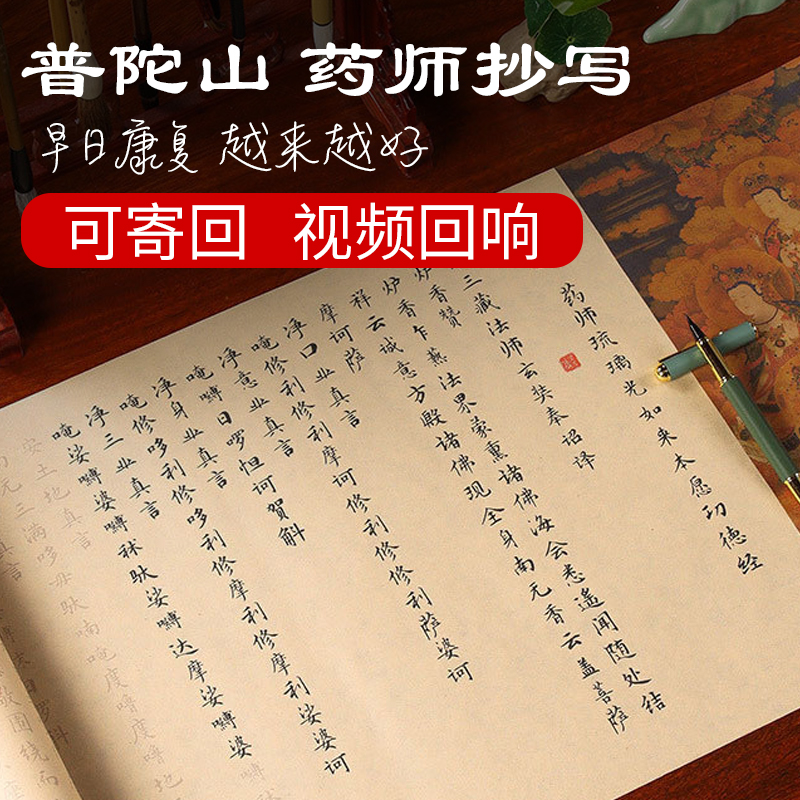 普陀山 药师抄写
早日康复 越来越好
可寄回 视频回响
药师琉璃光如来本愿功德经
三藏法师玄奘奉诏译
炉香赞
炉香乍爇法界蒙熏诸佛海会悉遥闻随处结
祥云诚意方殷诸佛现全身南无香云盖菩萨
摩诃萨
净口业真言
唵修利修利摩诃修利修修利萨婆诃
净意业真言
唵嚩日啰怛诃贺斛
净身业真言
唵修哆利修哆利修摩利修摩利娑婆诃
净三业真言
唵娑嚩婆嚩秫驮娑嚩达摩娑嚩婆
安土地真言
三满哆母驮喃唵度噜度噜地